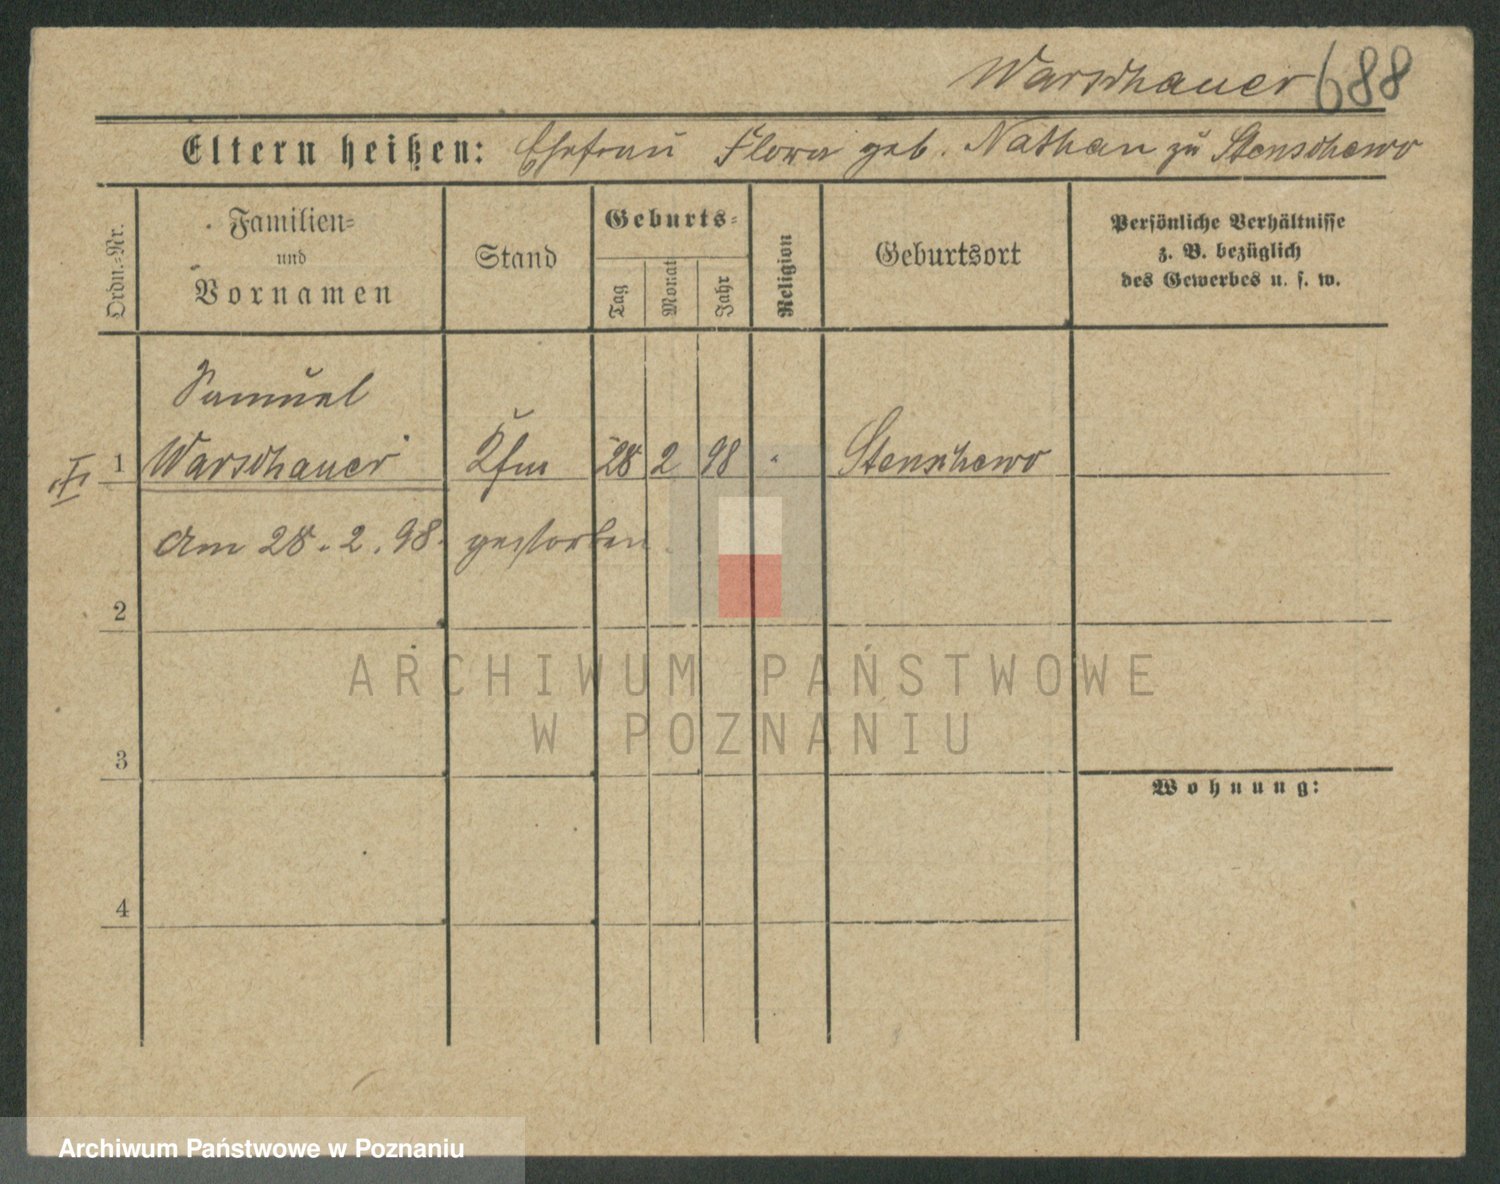 Warschauer 688
Eltern heißen: Ehefrau Flora geb. Nathan zu Stenschewo
Ordn.-Nr.
Familien- und Vornamen
Stand
Geburts-
Tag
Monat
Jahr
Religion
Geburtsort
Persönliche Verhältnisse
z. B. bezüglich
des Gewerbes u. s. w.
Samuel
1 Warschauer Kfm 28 2 98 Stenschewo
Am 28. 2. 98. gestorben.
2
3
Wohnung:
4
ARCHIWUM PAŃSTWOWE
W POZNANIU
Archiwum Państwowe w Poznaniu